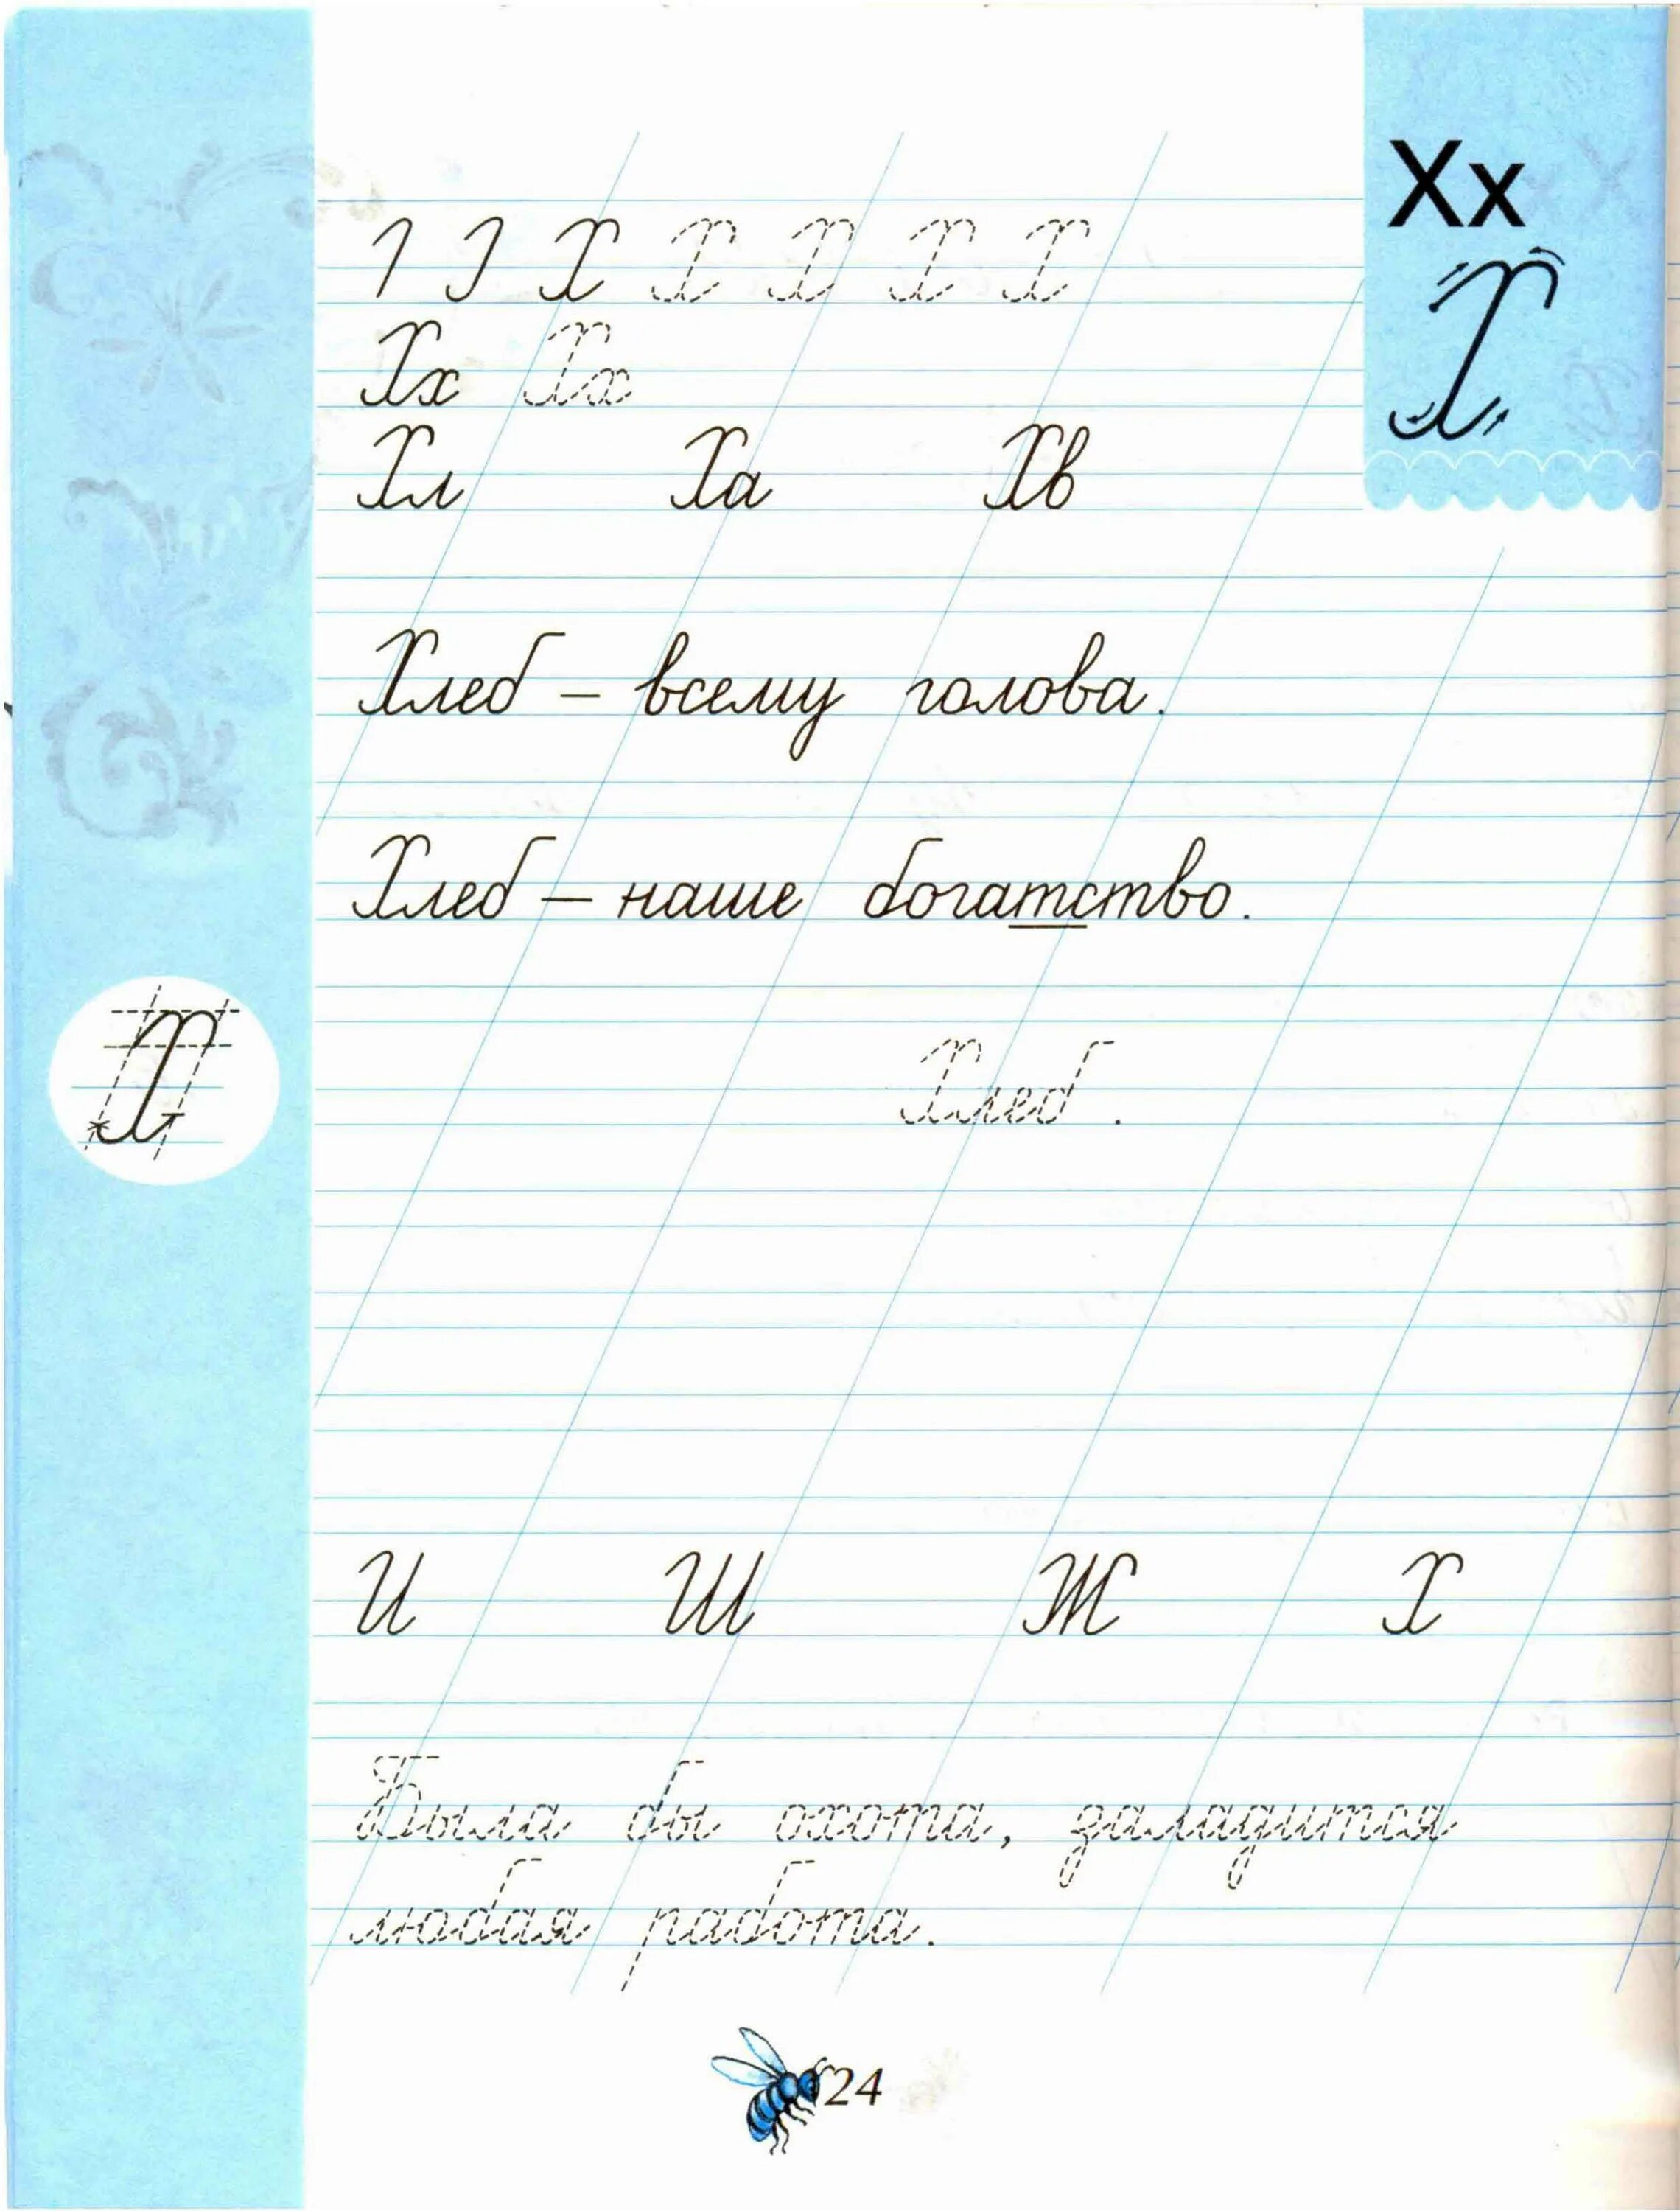 Хх
Х
Х Х Х Х Х
Хх Хх
Хл Ха Хв
Хлеб – всему голова.
Хлеб – наше богатство.
Х
Хлеб .
И Ш Ж Х
Была бы охота, заладится
любая работа.
24